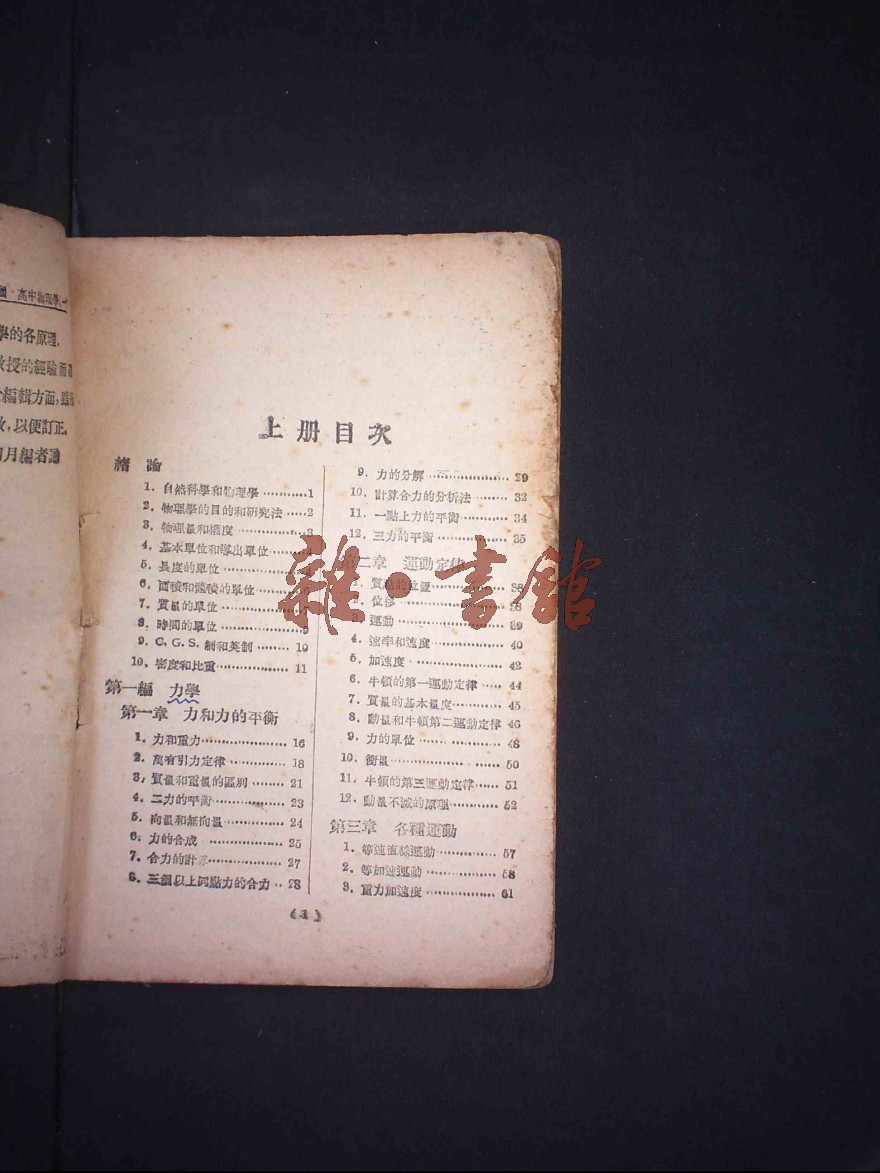 高中物理學
學的各原理,
教授的經驗而
編輯方面,
以便訂正,
月編者
上册目次
緒論
1. 自然科學和物理學 …………1
2. 物理學的目的和研究法 ……2
3. 物理量和
4. 基本單位和導出單位
5. 長度的單位
6. 面積和體積的單位
7. 質量的單位
8. 時間的單位 …………… 9
9. C. G. S. 制和英制 ……… 10
10. 密度和比重 …………… 11
第一編 力學
第一章 力和力的平衡
1. 力和重力 ……………… 16
2. 萬有引力定律 ………… 18
3. 質量和重量的區別 ……… 21
4. 二力的平衡 …………… 23
5. 向量和無向量 ………… 24
6. 力的合成 ……………… 25
7. 合力的計算 …………… 27
8. 三個以上同點力的合力 ‥ 28
9. 力的分解 ……………… 29
10. 計算合力的分析法 ……… 32
11. 一點上力的平衡 ……… 34
12. 三力的平衡 …………… 35
第二章 運動定律
1. 質點的位置 …………… 38
2. 位移 …………………… 38
3. 運動 …………………… 39
4. 速率和速度 …………… 40
5. 加速度 ………………… 42
6. 牛頓的第一運動定律 …… 44
7. 質量的基本量度 ……… 45
8. 動量和牛頓第二運動定律 46
9. 力的單位 ……………… 48
10. 衝量 …………………… 50
11. 牛頓的第三運動定律 …… 51
12. 動量不滅的原理 ……… 52
第三章 各種運動
1. 等速直線運動 ………… 57
2. 等加速運動 …………… 58
3. 重力加速度 …………… 61
(1)
雜·書館